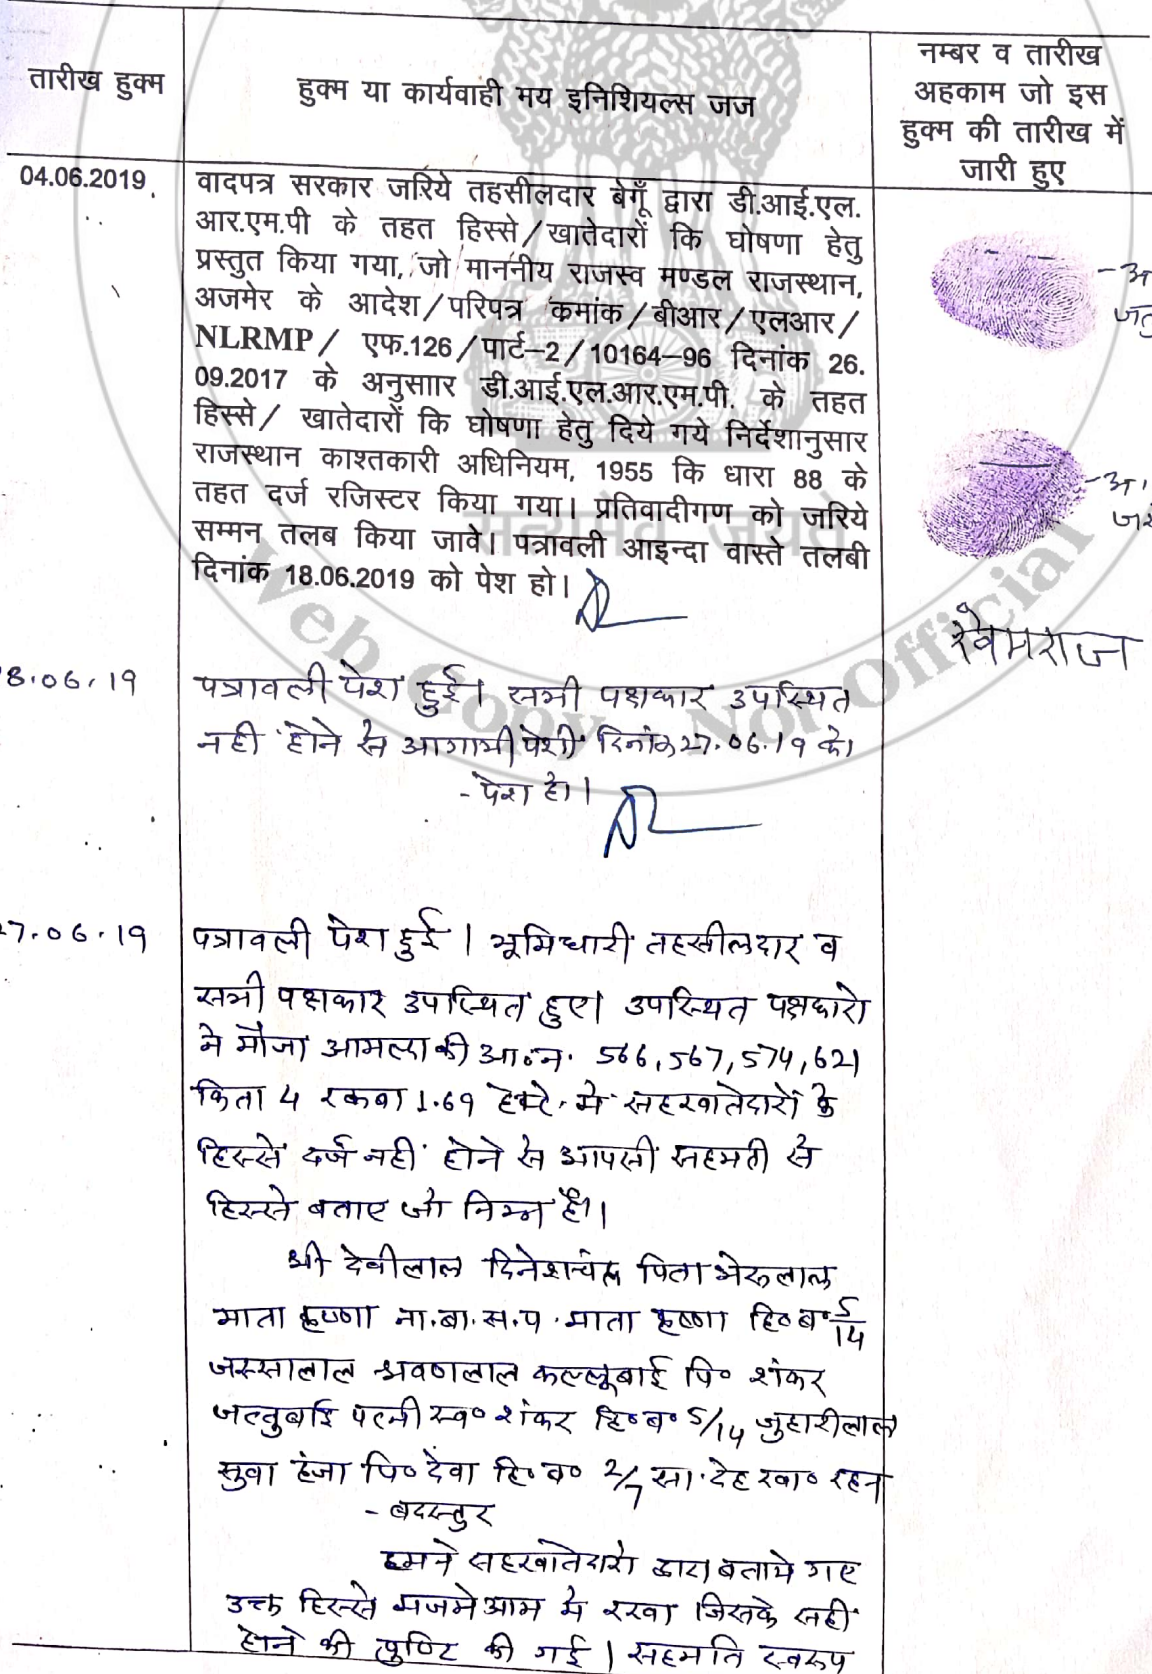 तारीख हुक्म
हुक्म या कार्यवाही मय इनिशियल्स जज
नम्बर व तारीख
अहकाम जो इस
हुक्म की तारीख में
जारी हुए
04.06.2019
वादपत्र सरकार जरिये तहसीलदार बेगूँ द्वारा डी.आई.एल.
आर.एम.पी के तहत हिस्से/खातेदारों कि घोषणा हेतु
प्रस्तुत किया गया, जो माननीय राजस्व मण्डल राजस्थान,
अजमेर के आदेश/परिपत्र कमांक/बीआर/एलआर/
NLRMP/ एफ.126/पार्ट-2/10164-96 दिनांक 26.
09.2017 के अनुसाार डी.आई.एल.आर.एम.पी. के तहत
हिस्से/ खातेदारों कि घोषणा हेतु दिये गये निर्देशानुसार
राजस्थान काश्तकारी अधिनियम, 1955 कि धारा 88 के
तहत दर्ज रजिस्टर किया गया। प्रतिवादीगण को जरिये
सम्मन तलब किया जावे। पत्रावली आइन्दा वास्ते तलबी
दिनांक 18.06.2019 को पेश हो।
सत्यमेव जयते
Web Copy - Not Official
खेमराज
8.06.19
पत्रावली पेश हुई। सभी पक्षकार उपस्थित
नही होने से आगामी पेशी दिनांक 27.06.19 को
- पेश हो।
27.06.19
पत्रावली पेश हुई। भूमिधारी तहसीलदार व
सभी पक्षकार उपस्थित हुए। उपस्थित पक्षकारो
ने मौजा आमल्दा की आ०न. 566,567,574,621
किता 4 रकबा 1.69 हेक्टे. मे सहखातेदारों के
हिस्से दर्ज नही होने से आपसी सहमती से
हिस्से बताए जो निम्न है।
श्री देवीलाल दिनेशचंद्र पिता भेरूलाल
माता कृष्णा ना.बा.स.प. माता कृष्णा हि०ब० 5/14
जस्सालाल श्रवणलाल कल्लूबाई पि० शंकर
जल्लुबाई पत्नी स्व० शंकर हि०ब० 5/14 जुहारीलाल
सुवा हंजा पि० देवा हि०ब० 2/7 सा.देह खा० रहन
- बदस्तुर
हमने सहखातेदारो द्वारा बताये गए
उक्त हिस्से मजमेआम मे रखा जिसके सही
होने की पुष्टि की गई। सहमति स्वरूप